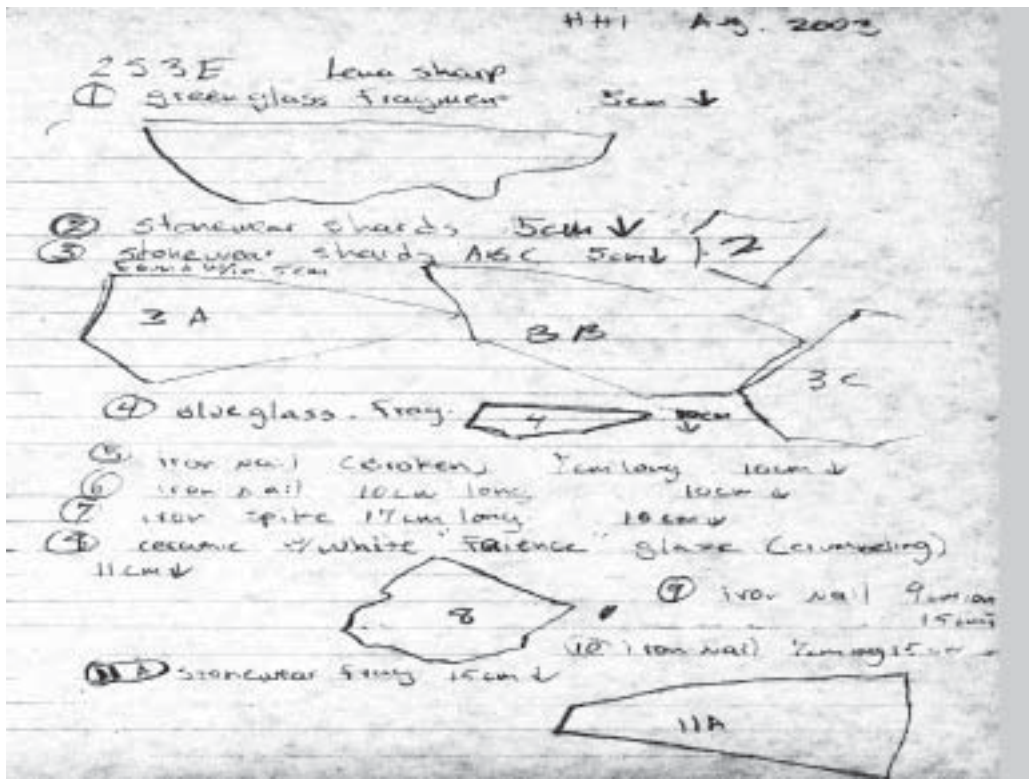 HHI Aug. 2003
253E Lena sharp
① green glass fragment 5cm ↓
② stonewear shards 5cm ↓
③ stonewear shards ABC 5cm ↓ 2
found w/in 5cm
3 A
3 B
3 C
④ blue glass. frag. 4 ↓
⑤ iron nail (broken) 7cm long 10cm ↓
⑥ iron nail 10cm long 10cm ↓
⑦ iron spike 17cm long 10cm ↓
⑧ ceramic w/white "Faience" glaze
11cm ↓
8
⑨ iron nail 9cm
15cm
10 iron nail 15cm
11 A stonewear frag 15cm ↓
11A